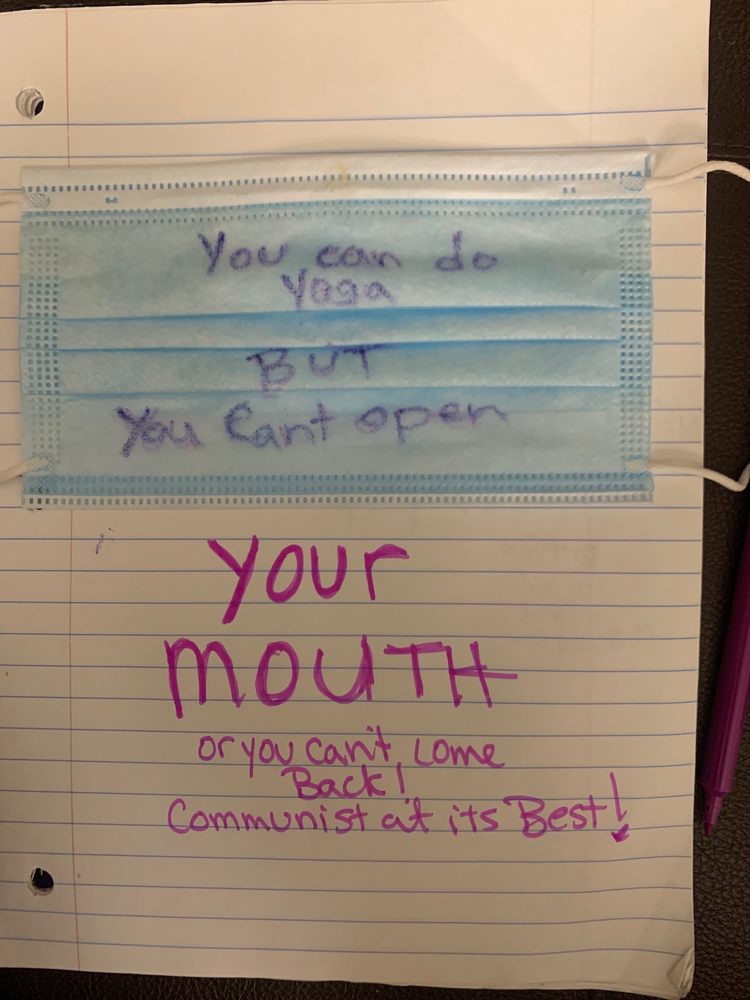 You can do
Yoga
BUT
You Cant open
Your
MOUTH
or you can't come
Back!
Communist at its Best!